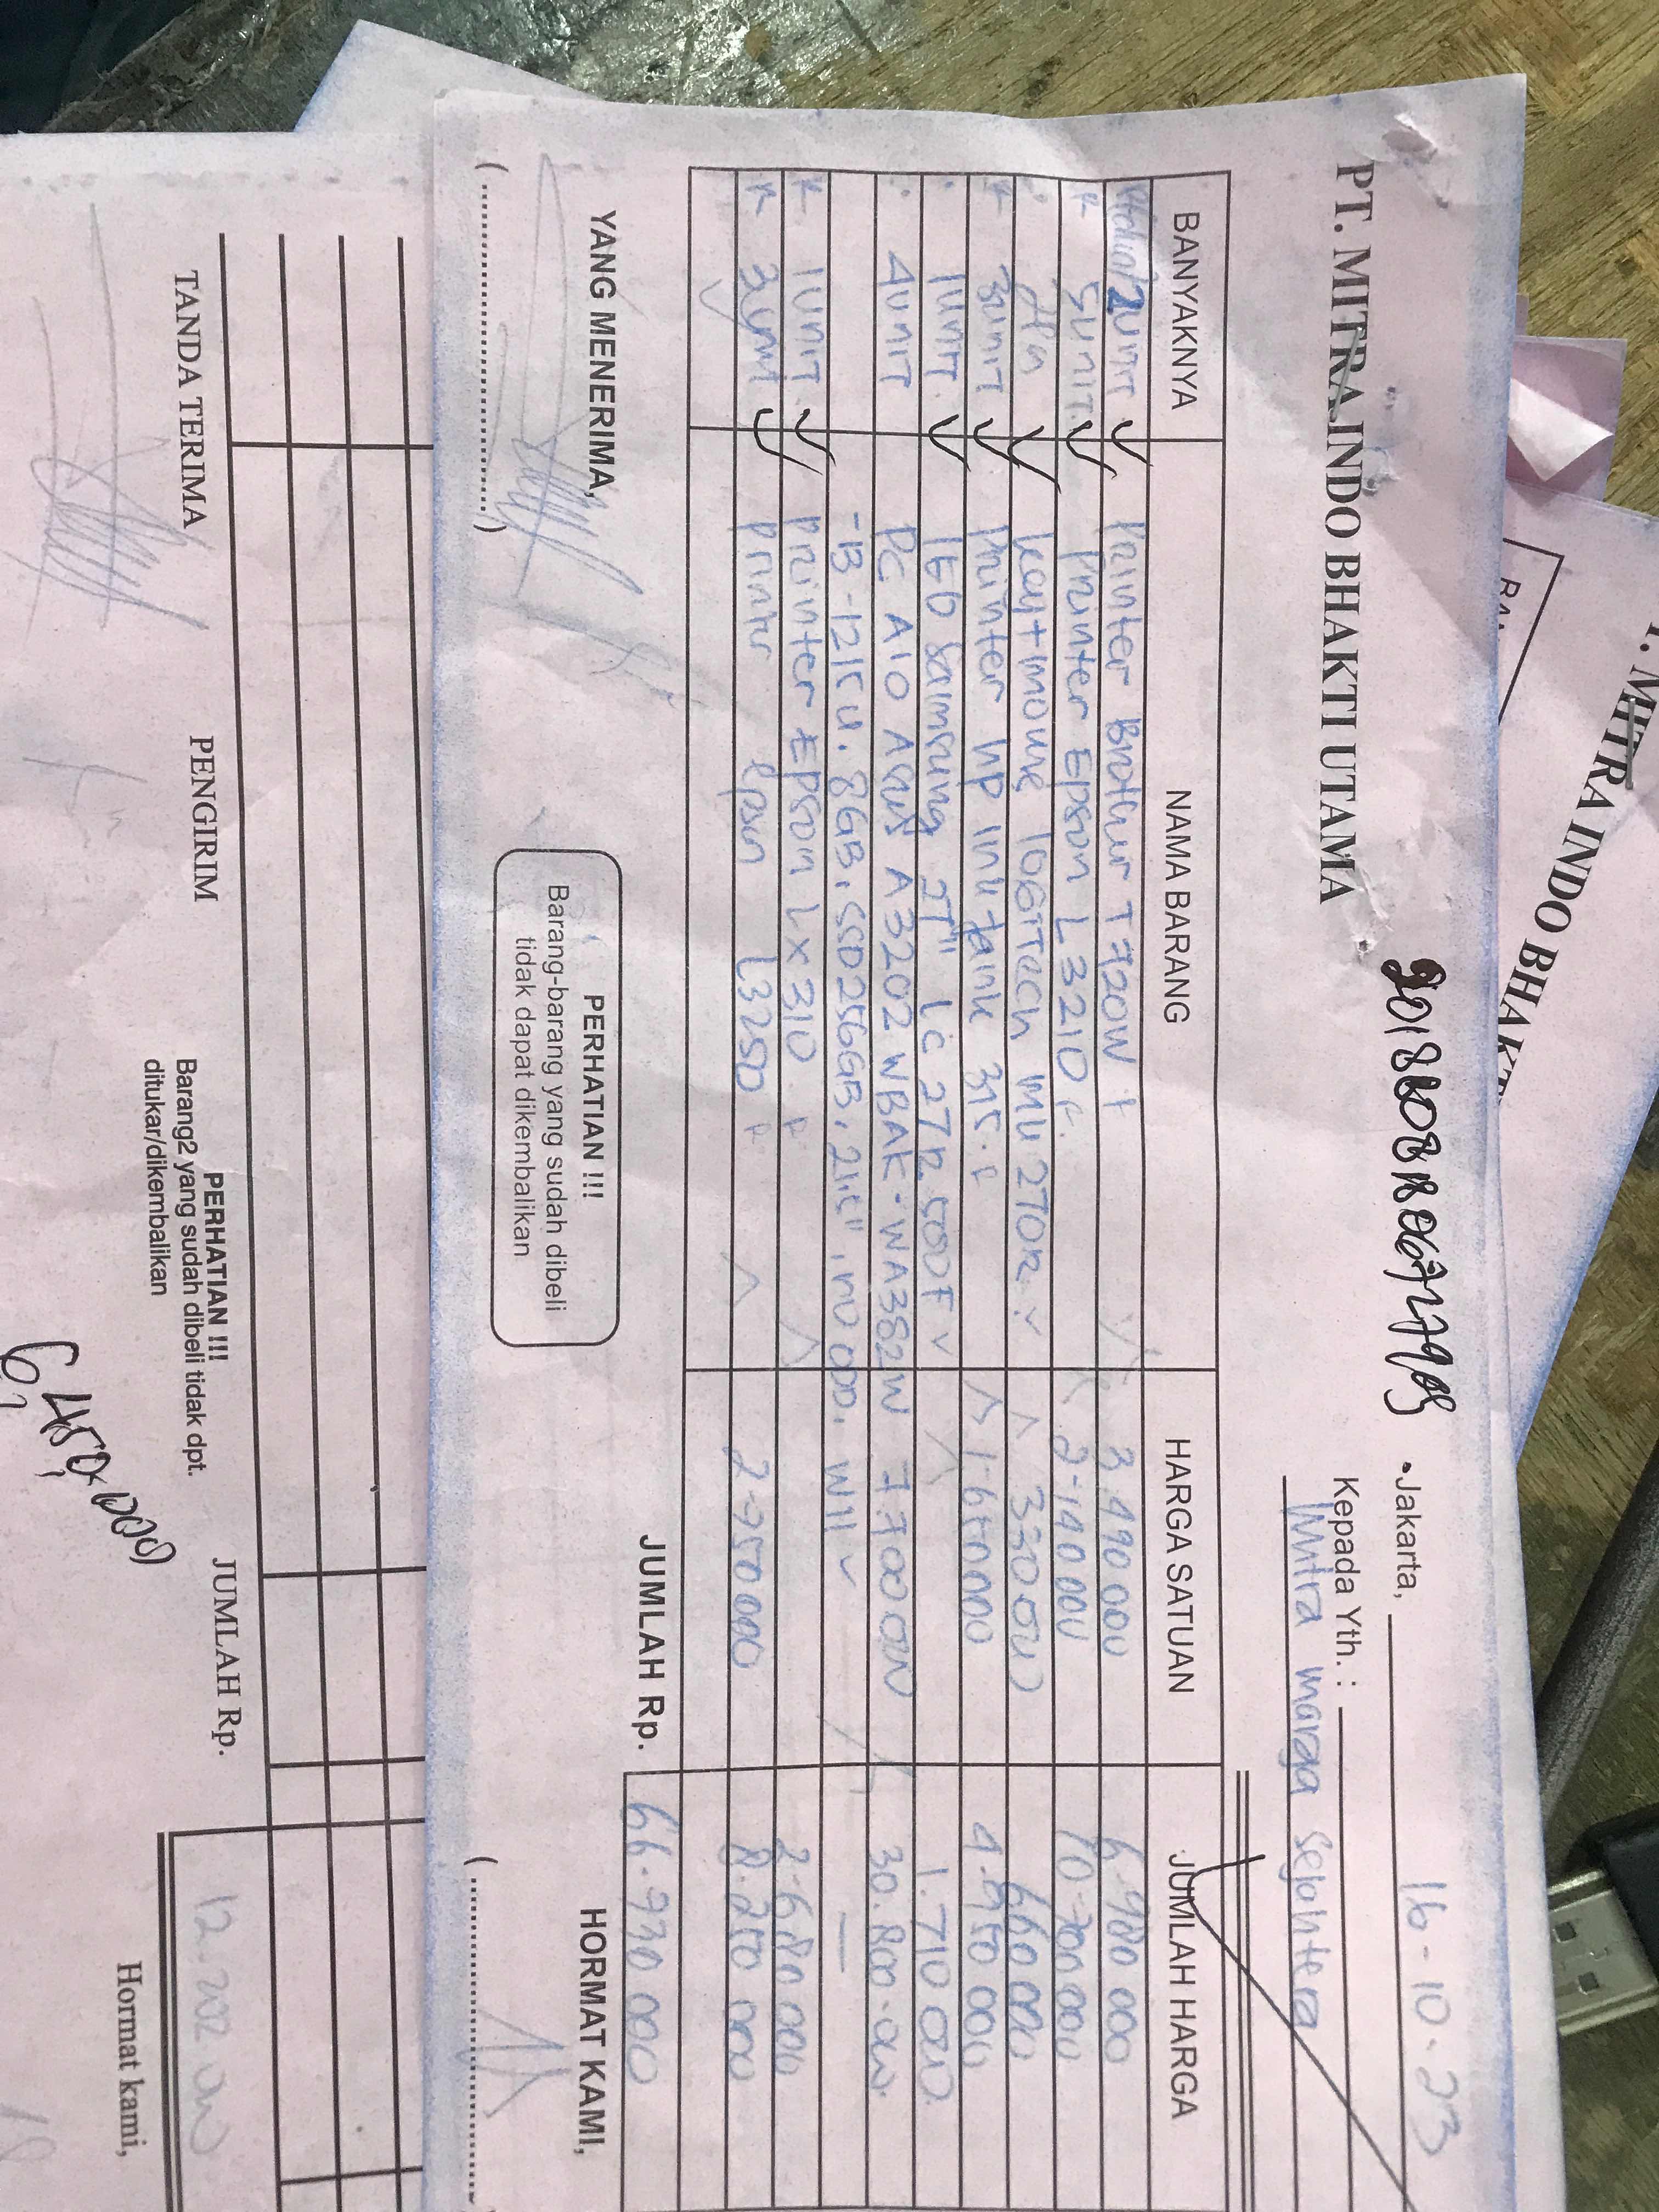 PT. MITRA INDO BHAKTI UTAMA
Jakarta, 16-10-23
Kepada Yth. :
Mitra marga sejahtera
BANYAKNYA NAMA BARANG HARGA SATUAN JUMLAH HARGA
2 unit Printer Brother T720W 3.490 000 6.980 000
5 unit Printer Epson L3210 2.140 000 10.700 000
key+mouse logitech MK 270R 330.000 660 000
3 unit Printer HP Ink tank 315 1.650000 4.950 000
1 unit LED Samsung 27" LC 27R 500F 1.710 000
4 unit PC AIO Asus A3202 WBAK-WA382W 7.700 000 30.800.000
8GB, SSD256GB, W11 —
1 unit Printer EPSON LX 310 2.680 000
3 unit Printer Epson L3250 2.750 000 8.250 000
JUMLAH Rp. 66.730 000
YANG MENERIMA,
PERHATIAN !!!
Barang-barang yang sudah dibeli
tidak dapat dikembalikan
HORMAT KAMI,
(....................)
TANDA TERIMA
PENGIRIM
PERHATIAN !!!
Barang2 yang sudah dibeli tidak dpt.
ditukar/dikembalikan
JUMLAH Rp.
Hormat kami,
MITRA INDO BHAKT